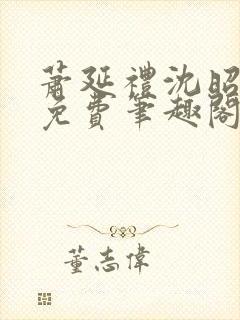 蕭延禮沈昭
免費筆趣閣
董志偉